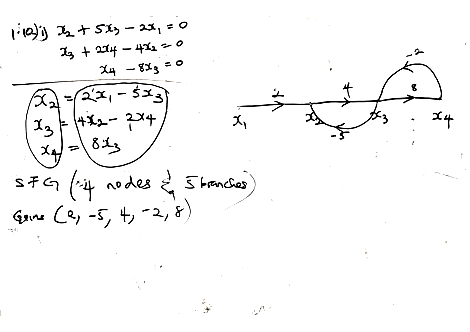 1.10) i) x₂ + 5x₃ - 2x₁ = 0
x₃ + 2x4 - 4x₂ = 0
x4 - 8x₃ = 0
x₂ = 2x₁ - 5x₃
x₃ = 4x₂ - 2x4
x4 = 8x₃
SFG (4 nodes & 5 branches)
Gains (2, -5, 4, -2, 8)
-2
2 4 8
x₁ x₂ x₃ x4
-5